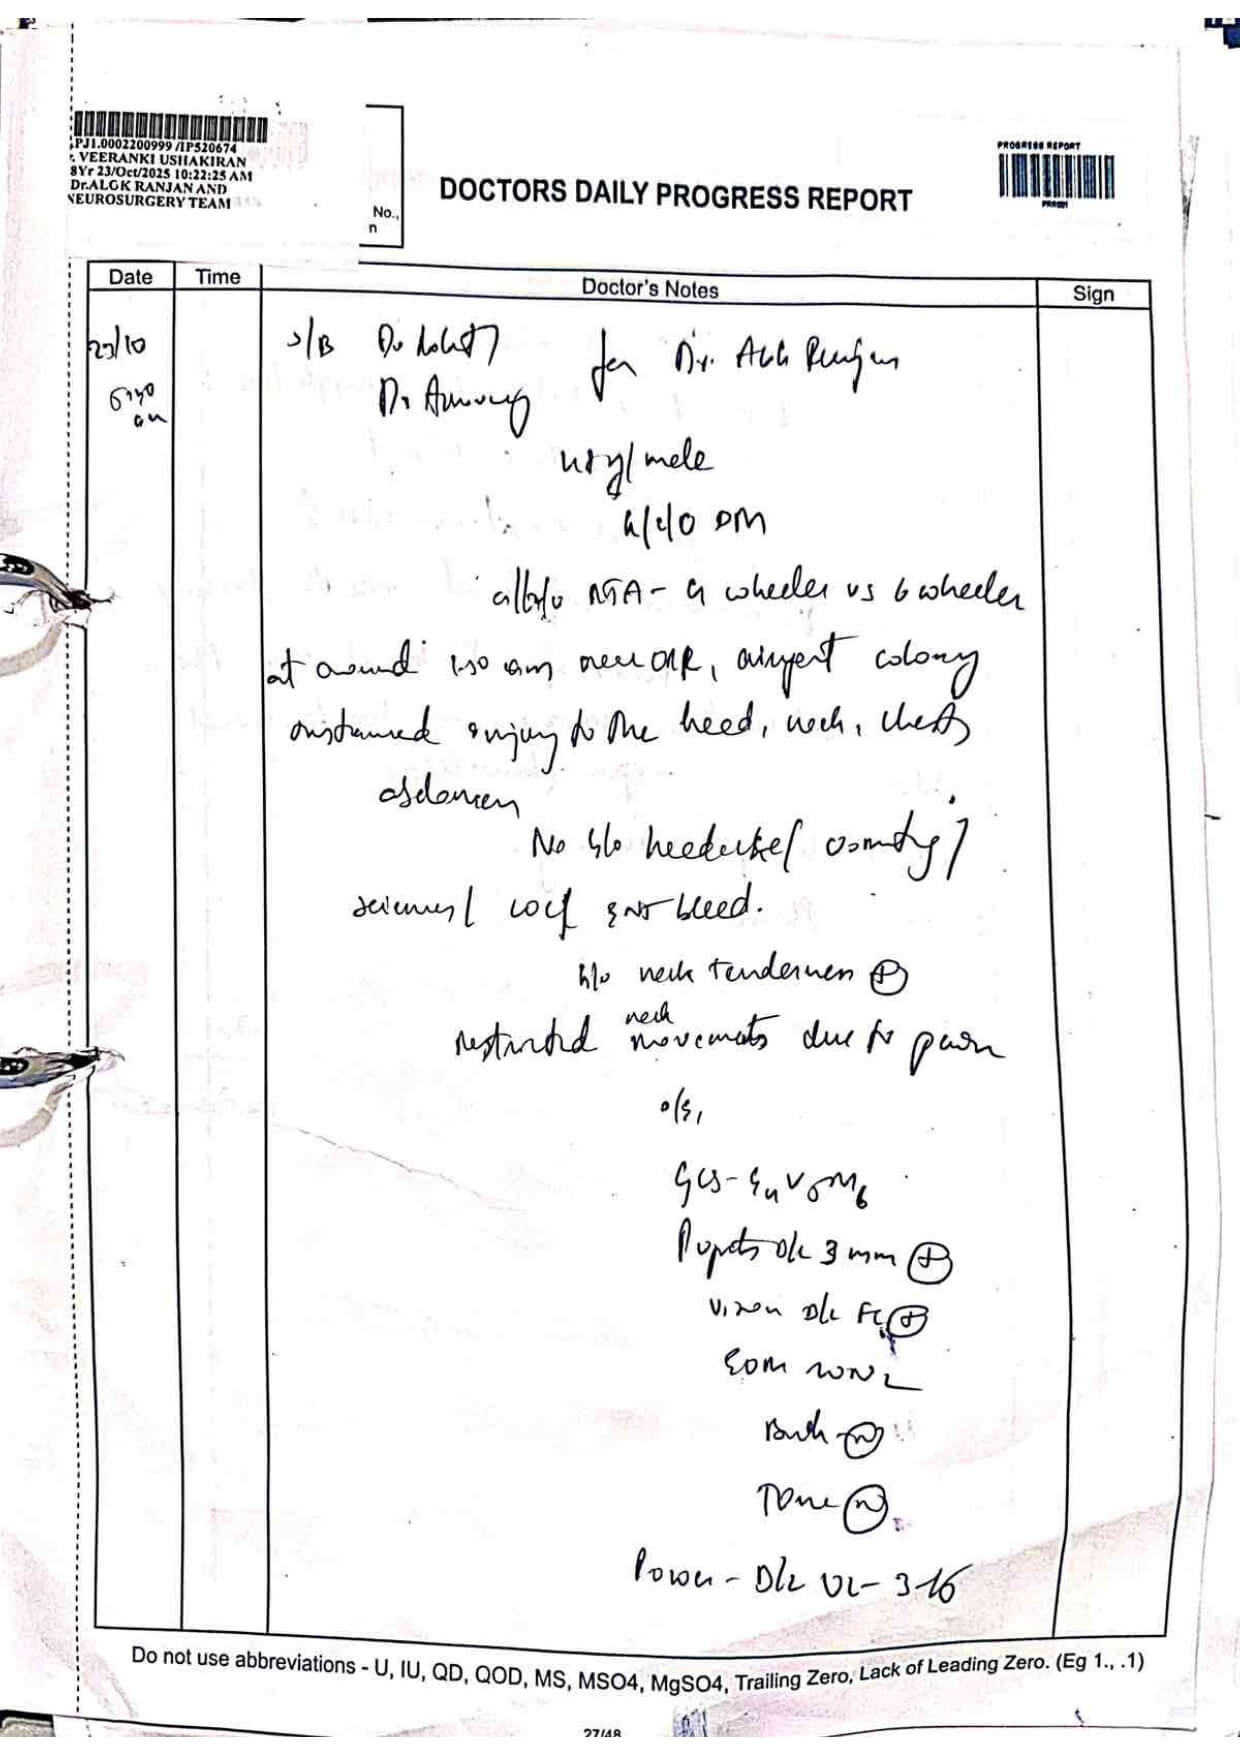 PJ1.0002200999 /IP520674
VEERANKI USHAKIRAN
8Yr 23/Oct/2025 10:22:25 AM
Dr.ALOK RANJAN AND
NEUROSURGERY TEAM
No.,
n
DOCTORS DAILY PROGRESS REPORT
PROGRESS REPORT
Date Time Doctor's Notes Sign
23/10 S/B Dr for Dr. Alok Ranjan
am Dr
/male
K/C/O DM
RTA - 4 wheeler vs 6 wheeler
at around 1:30 am near ORR, airport colony
sustained injury to the head, neck, chest,
abdomen
No h/o headache/ vomiting/
seizures/ LOC/ ENT bleed.
h/o neck tenderness ⊕
restricted neck movements due to pain
o/e,
GCS - E4V5M6
Pupils B/L 3 mm ⊕
Vision B/L FC ⊕
EOM
Bulk (N)
Tone (N)
Power - B/L UL -
Do not use abbreviations - U, IU, QD, QOD, MS, MSO4, MgSO4, Trailing Zero, Lack of Leading Zero. (Eg 1., .1)
27/48